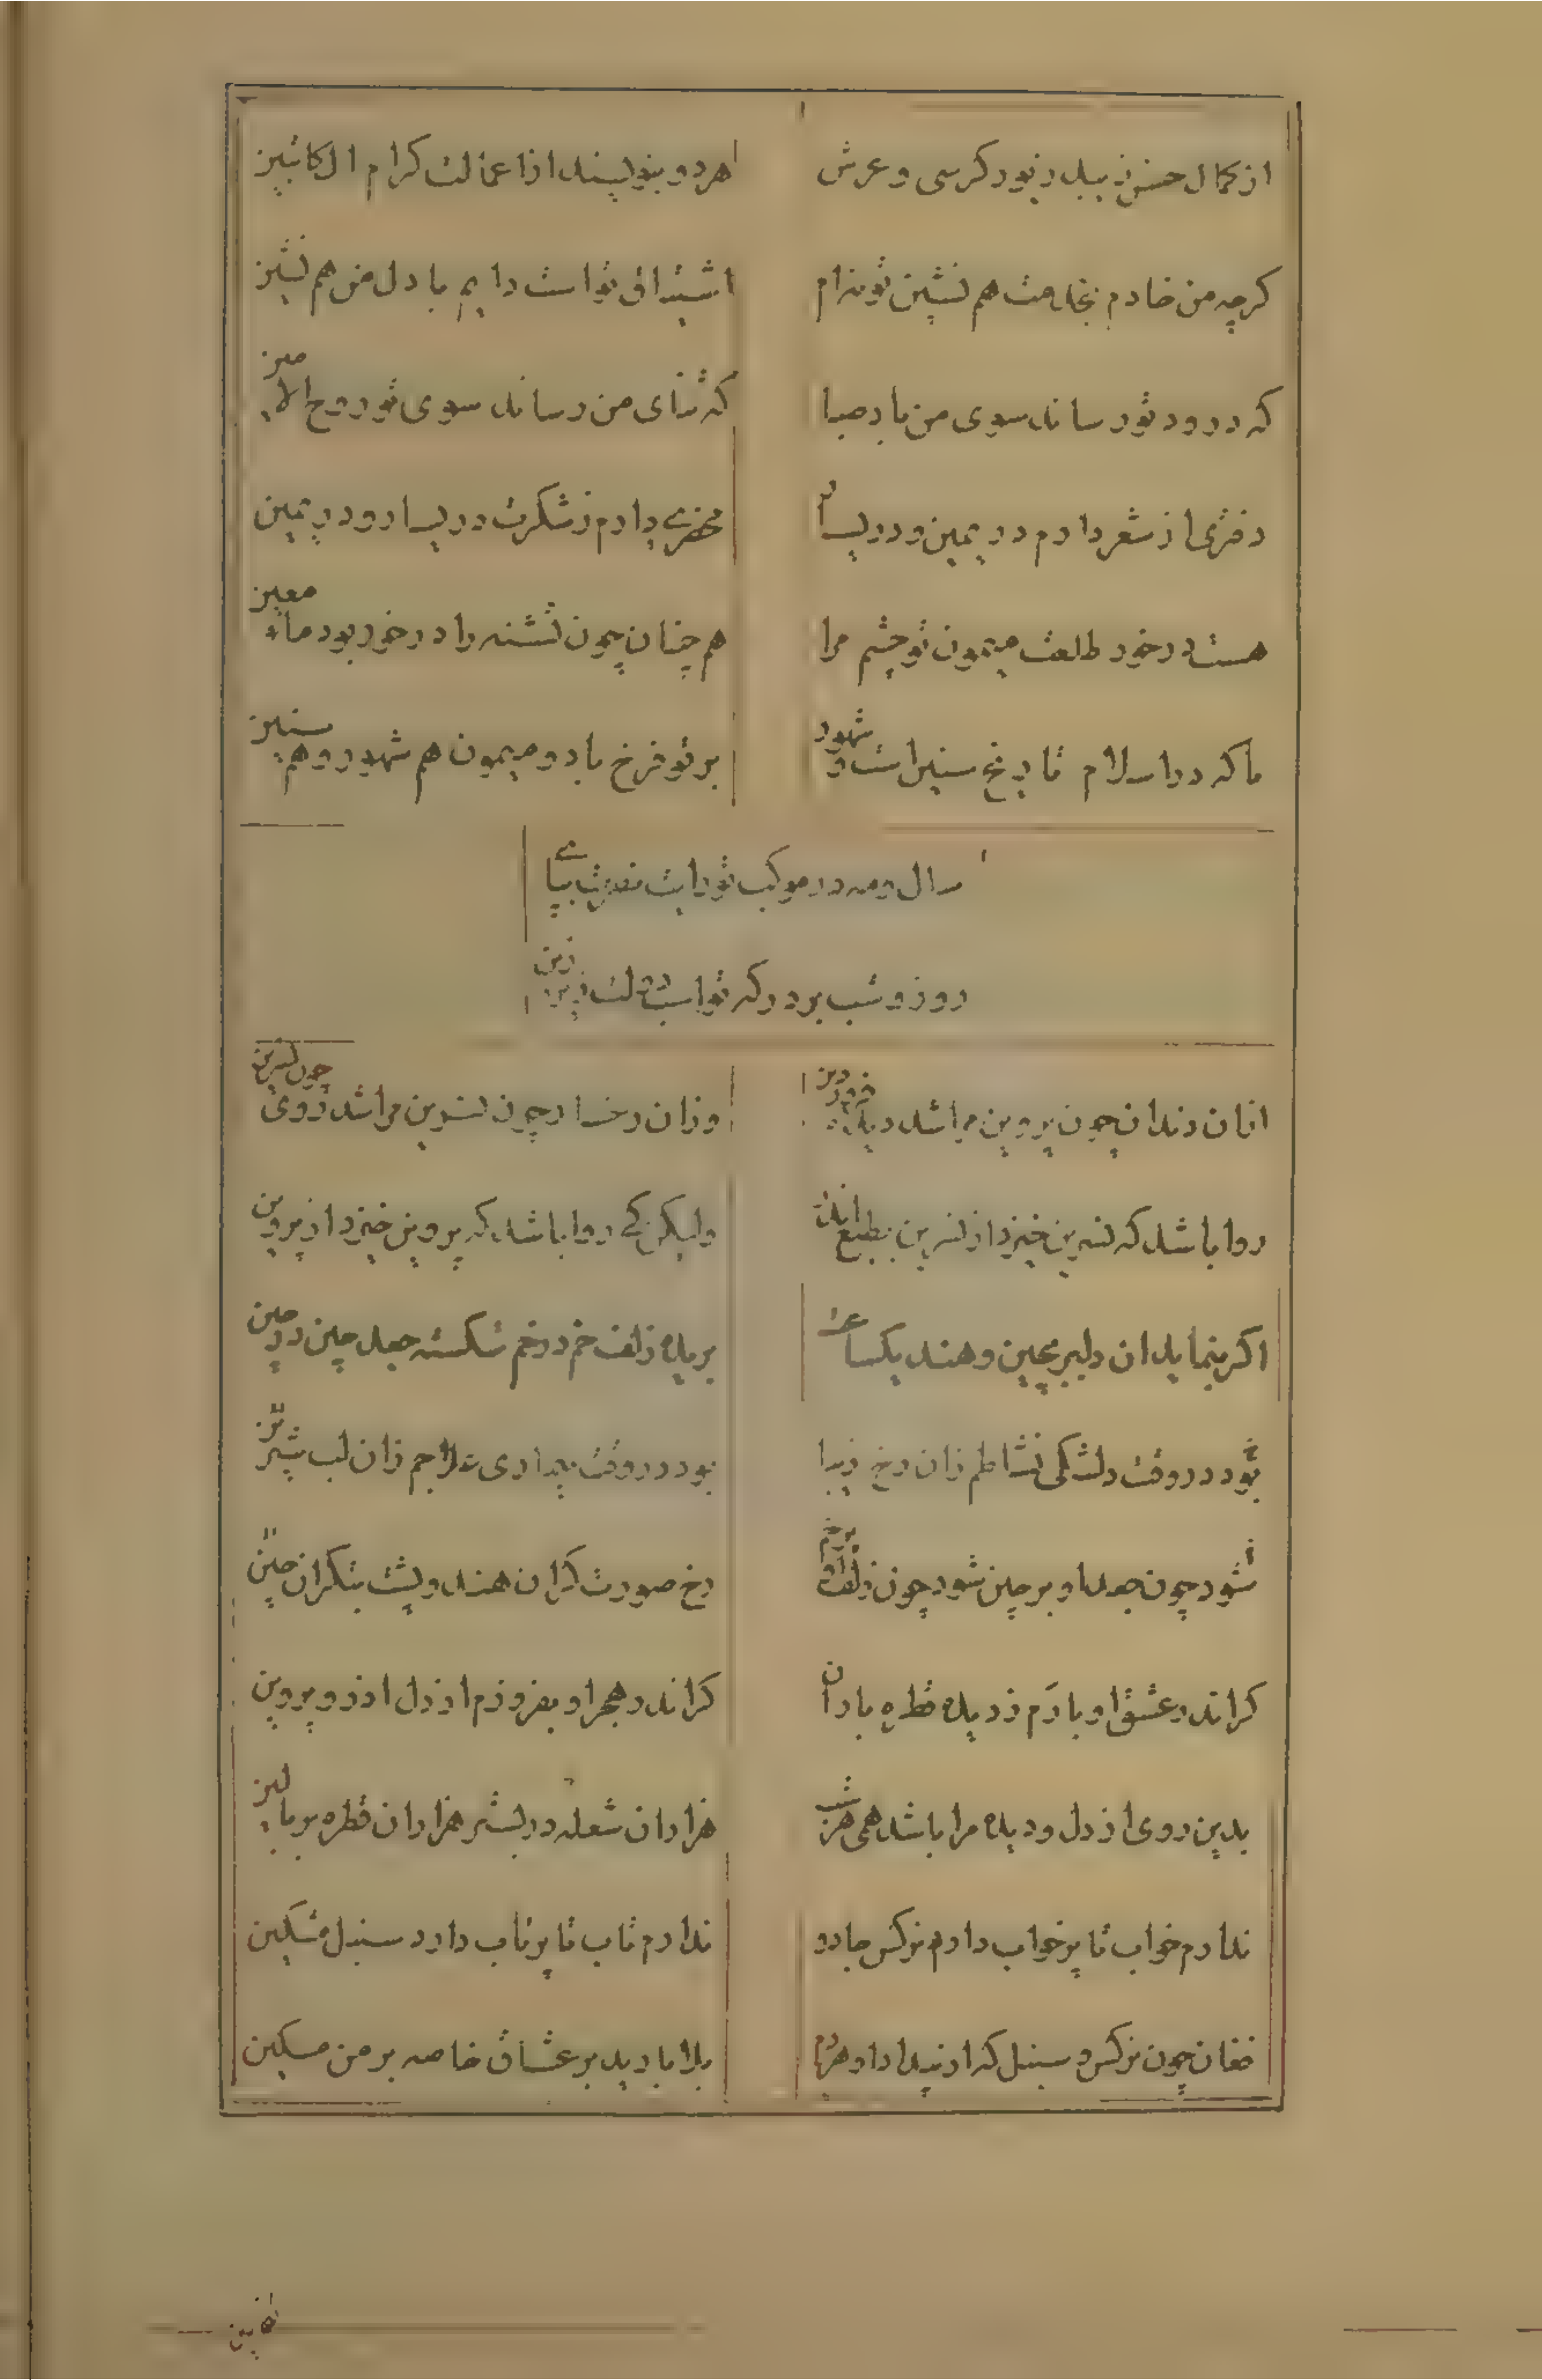 از کمال حسن زیبد زیور کرسی و عرش
هر دو بنویسند از اعمالت کرام الکاتبین
کرچه من خادم بخدمت هم نشین تو نه ام
اشتیاق تو است دایم با دل من هم نشین
که درود تو رساند سوی من باد صبا
که ثنای من رساند سوی تو روح الامین
دفتری از شعر دارم در یمین و در یسار
محضری دارم ز شکرت در یسار و در یمین
هست در خور طلعت میمون تو چشم مرا
هم چنان چون تشنه را در خور بود ماء معین
تا که در اسلام تاریخ سنین است و شهور
بر تو فرخ باد و میمون هم شهور و هم سنین
سال و مه در موکب تو رایت نصرت بپای
روز و شب بر درکه تو اسب دولت زیر زین
از ان دندان چون پروین مرا شد دیده
وزان رخسار چون نسرین مرا شد روی چون نسرین
روا باشد که نسرین خیزد از نسرین بطبع اندر
ولیکن کی روا باشد که پروین خیزد از پروین
اکر بنماید ان دلبر بچین و هند یکساعت
بریده زلف خم در خم شکسته جعد چین در چین
بود در وقت دلتنکی نشاطم زان رخ زیبا
بود در وقت بیماری علاجم زان لب شیرین
شود چون جعد او بر چین شود چون زلف او پر خم
رخ صورت کران هند و پشت بتکران چین
کر اندر عشق او بارم ز دیده قطره باران
کر اندر هجر او بفروزم از دل اذر و برزین
بدین روی از دل و دیده مرا باشد همی هر شب
هزاران شعله در بستر هزاران قطره بر بالین
ندارم خواب تا پر خواب دارم نرکس جادو
ندارم تاب تا پر تاب دارد سنبل مشکین
فغان چون نرکس و سنبل که از بیداد او هر دم
بلا بارید بر عشاق خاصه بر من مسکین